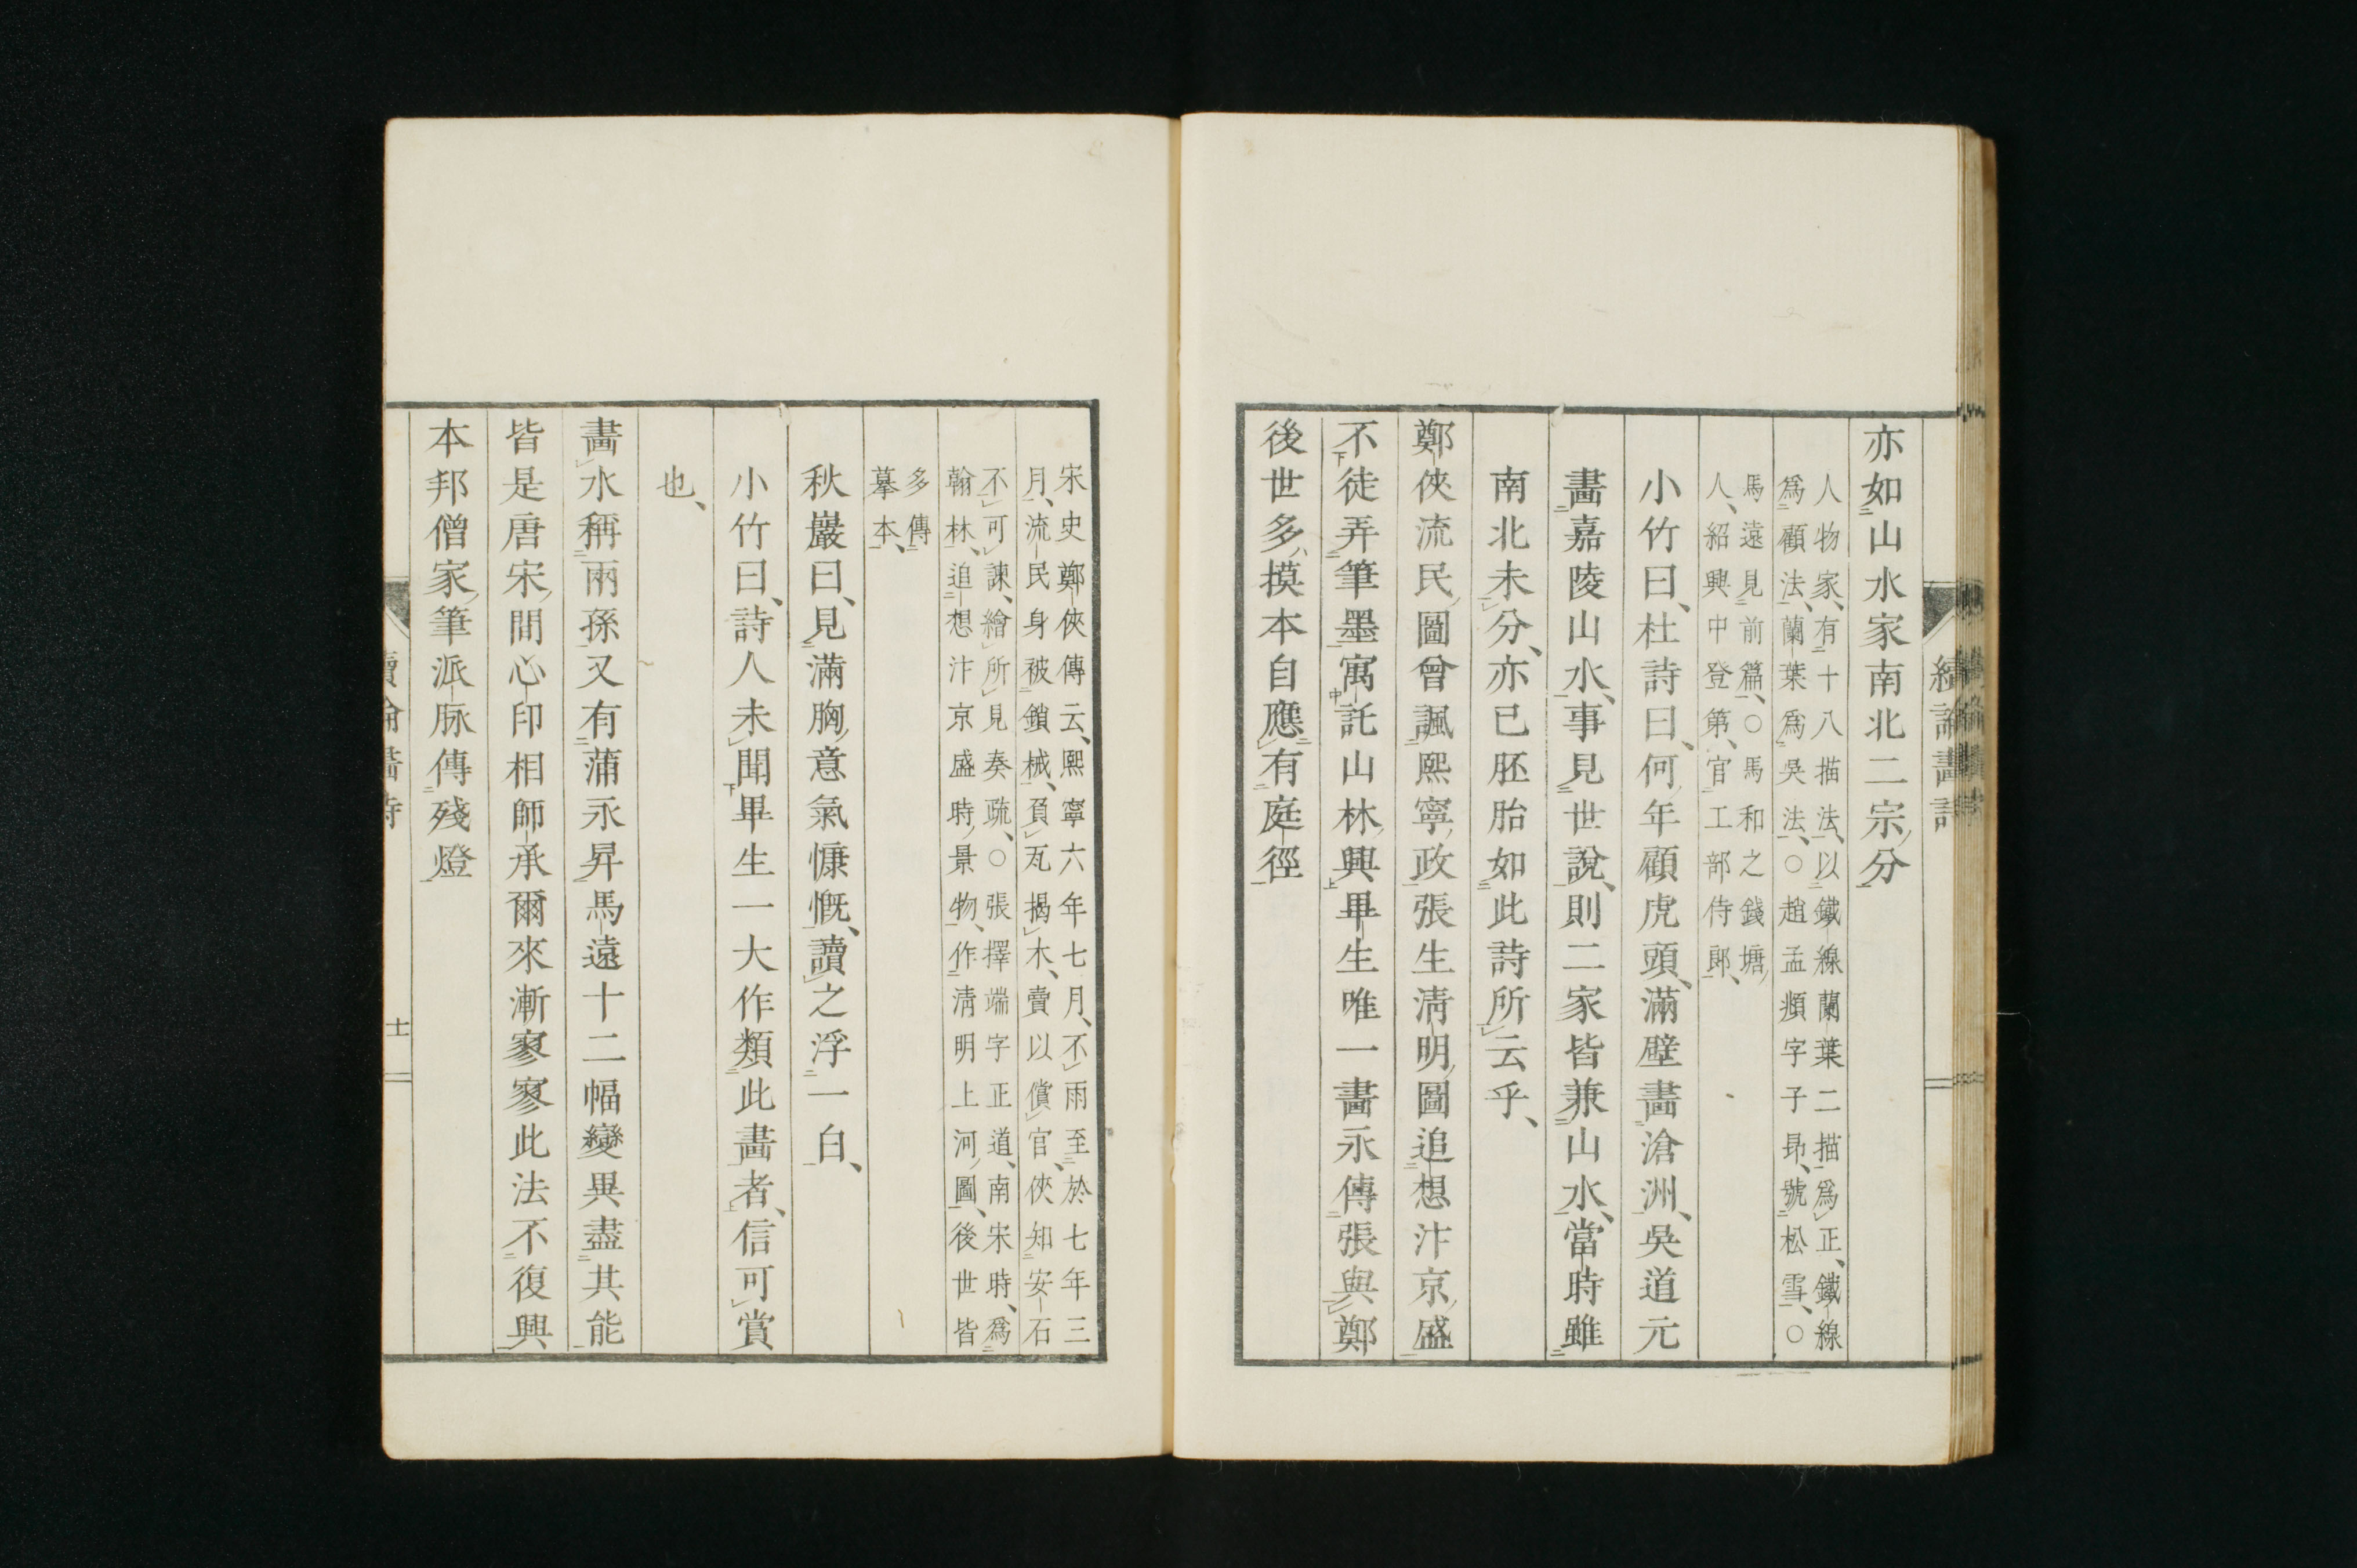 續論畫詩
亦如山水家南北二宗分
人物家、有十八描法、以鐵線蘭葉二描爲正、鐵線
爲顧法、蘭葉爲吳法、○趙孟頫字子昻、號松雪、○
馬遠見前篇、○馬和之錢塘
人、紹興中登第、官工部侍郎、
小竹曰、杜詩曰、何年顧虎頭、滿壁畫滄洲、吳道元
畫嘉陵山水、事見世說、則二家皆兼山水、當時雖
南北未分、亦已胚胎如此詩所云乎、
鄭俠流民圖曾諷熙寧政張生淸明圖追想汴京盛
不徒弄筆墨寓託山林興畢生唯一畫永傳張與鄭
後世多摸本自應有庭徑
宋史鄭俠傳云、熙寧六年七月、不雨至於七年三
月、流民身被鎖械、負瓦揭木、賣以償官、俠知安石
不可諫、繪所見奏疏、○張擇端字正道、南宋時、爲
翰林、追想汴京盛時景物、作淸明上河圖、後世皆
多傳
摹本、
秋巖曰、見滿胸意氣慷慨、讀之浮一白、
小竹曰、詩人未聞畢生一大作類此畫者、信可賞
也、
畫水稱兩孫又有蒲永昇馬遠十二幅變異盡其能
皆是唐宋間心印相師承爾來漸寥寥此法不復興
本邦僧家筆派脉傳殘燈
續論畫詩
十一